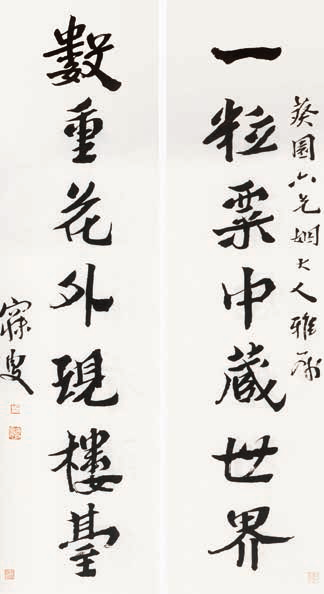 葵園六兄姻大人雅属
一粒粟中藏世界
數重花外現樓臺
寐叟